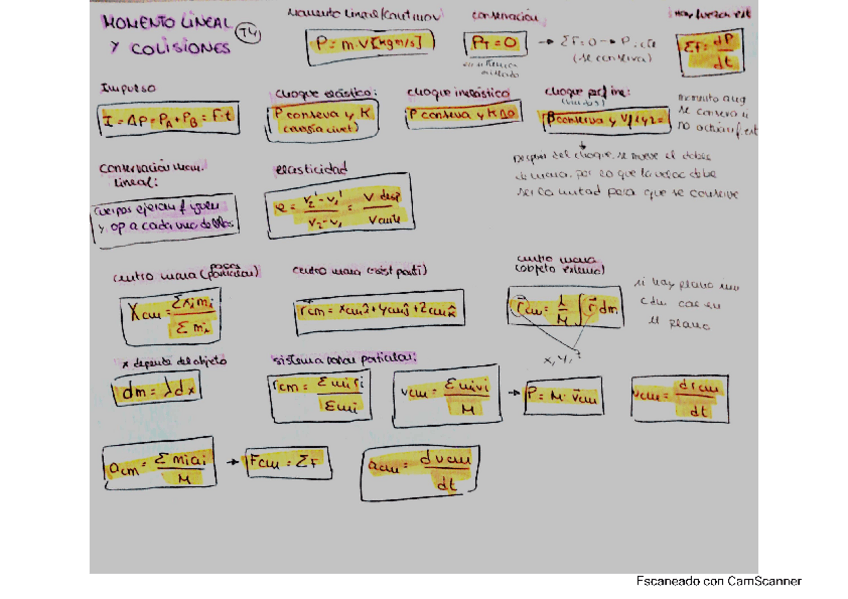 MOMENTO LINEAL
Y COLISIONES
T4
Momento lineal/cant mov
P = m·V [kg m/s]
conservación
PT = 0
→ ΣF=0 → P. cte
(se conserva)
hay fuerzas ext
ΣF = dP/dt
Impulso
I = ΔP = PA + PB = F·t
choque elástico:
P conserva y K
(energía cinet)
choque inelástico
P conserva y K
choque perf ine:
P conserva y Vf1 y 2 =
momento ang
se conserva
no actúan f ext
Después del choque, se mueve el doble
de masa, por lo que la veloc debe
ser la mitad para que se conserve
conservación mom.
lineal:
cuerpos ejercen f
y op a cada uno de ellos
elasticidad
e = v2'-v1' / v2-v1 = V desp / V antes
centro masa (pocas partículas)
Xcm = Σximi / Σmi
centro masa
rcm = xcm î + ycm ĵ + zcm k̂
centro masa
(objeto extenso)
r⃗cm = 1/M ∫ r⃗ dm
x, y,
si hay plano
cdm cae en
el plano
λ depende del objeto
dm = λdx
sistema varias partículas:
rcm = Σmiri / Σmi
vcm = Σmivi / M
→ P = M·v⃗cm
vcm = drcm/dt
acm = Σmiai / M
→ Fcm = ΣF
acm = dvcm/dt
Escaneado con CamScanner